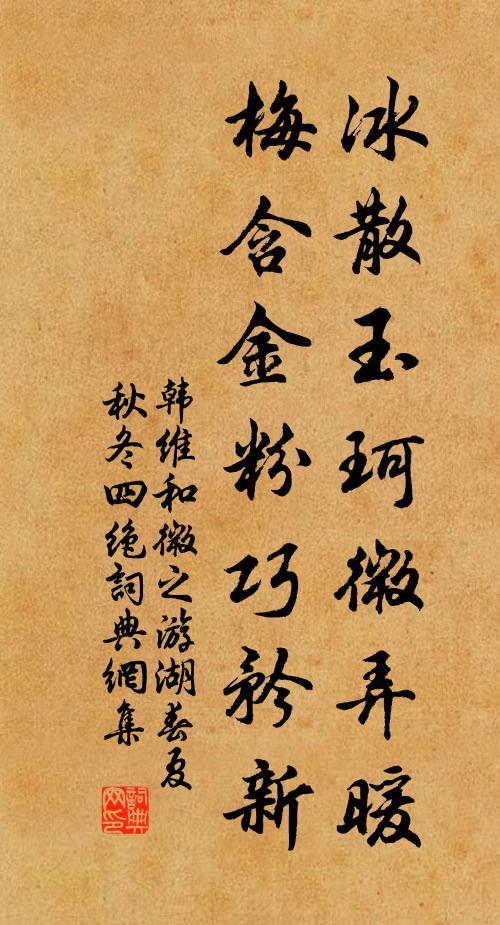 冰散玉珂微弄暖
梅含金粉巧矜新
韩维和微之游湖春夏
秋冬四绝詞典網集
詞典网印